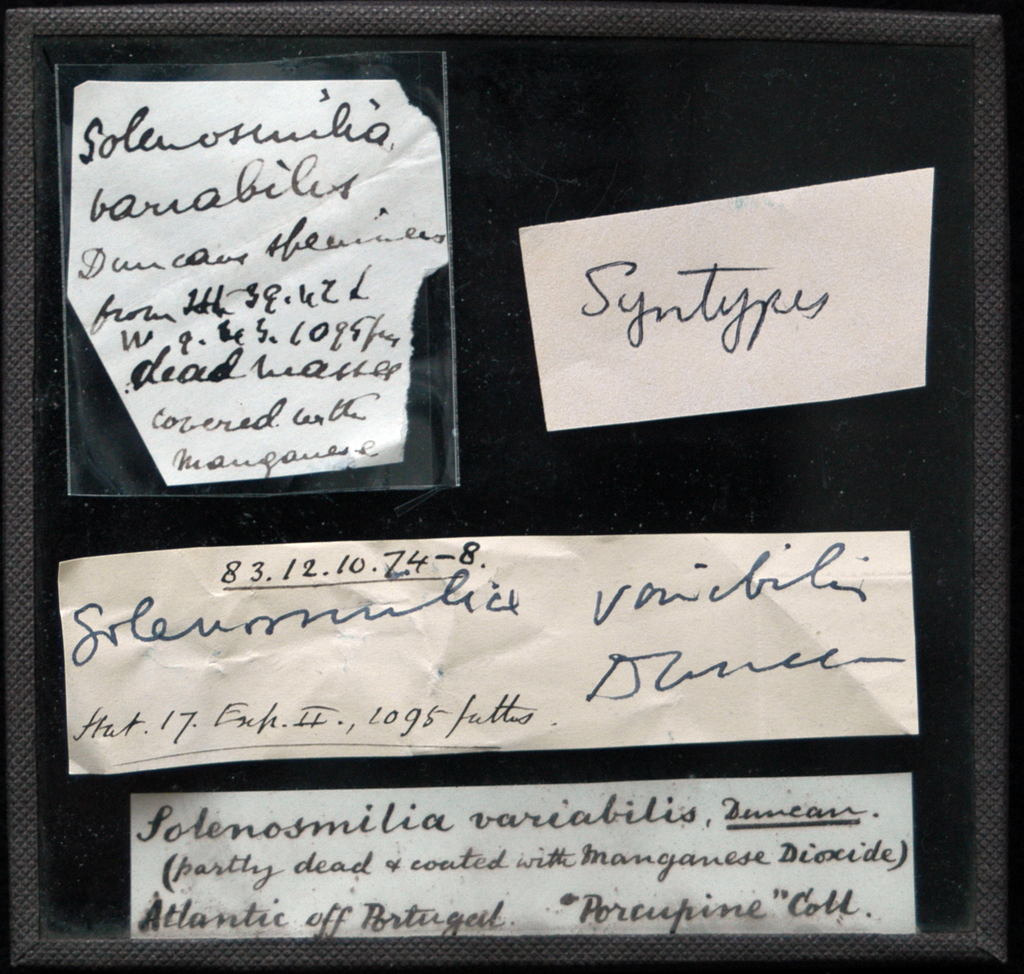 Solenosmilia
variabilis
Duncans specimens
from 39.42 L
W 9.43. 1095 fms
dead masses
covered with
manganese
Syntypes
83.12.10.74-8.
Solenosmilia variabilis
Duncan
Stat. 17. Exp. II., 1095 faths.
Solenosmilia variabilis, Duncan.
(partly dead & coated with Manganese Dioxide)
Atlantic off Portugal. "Porcupine" Coll.